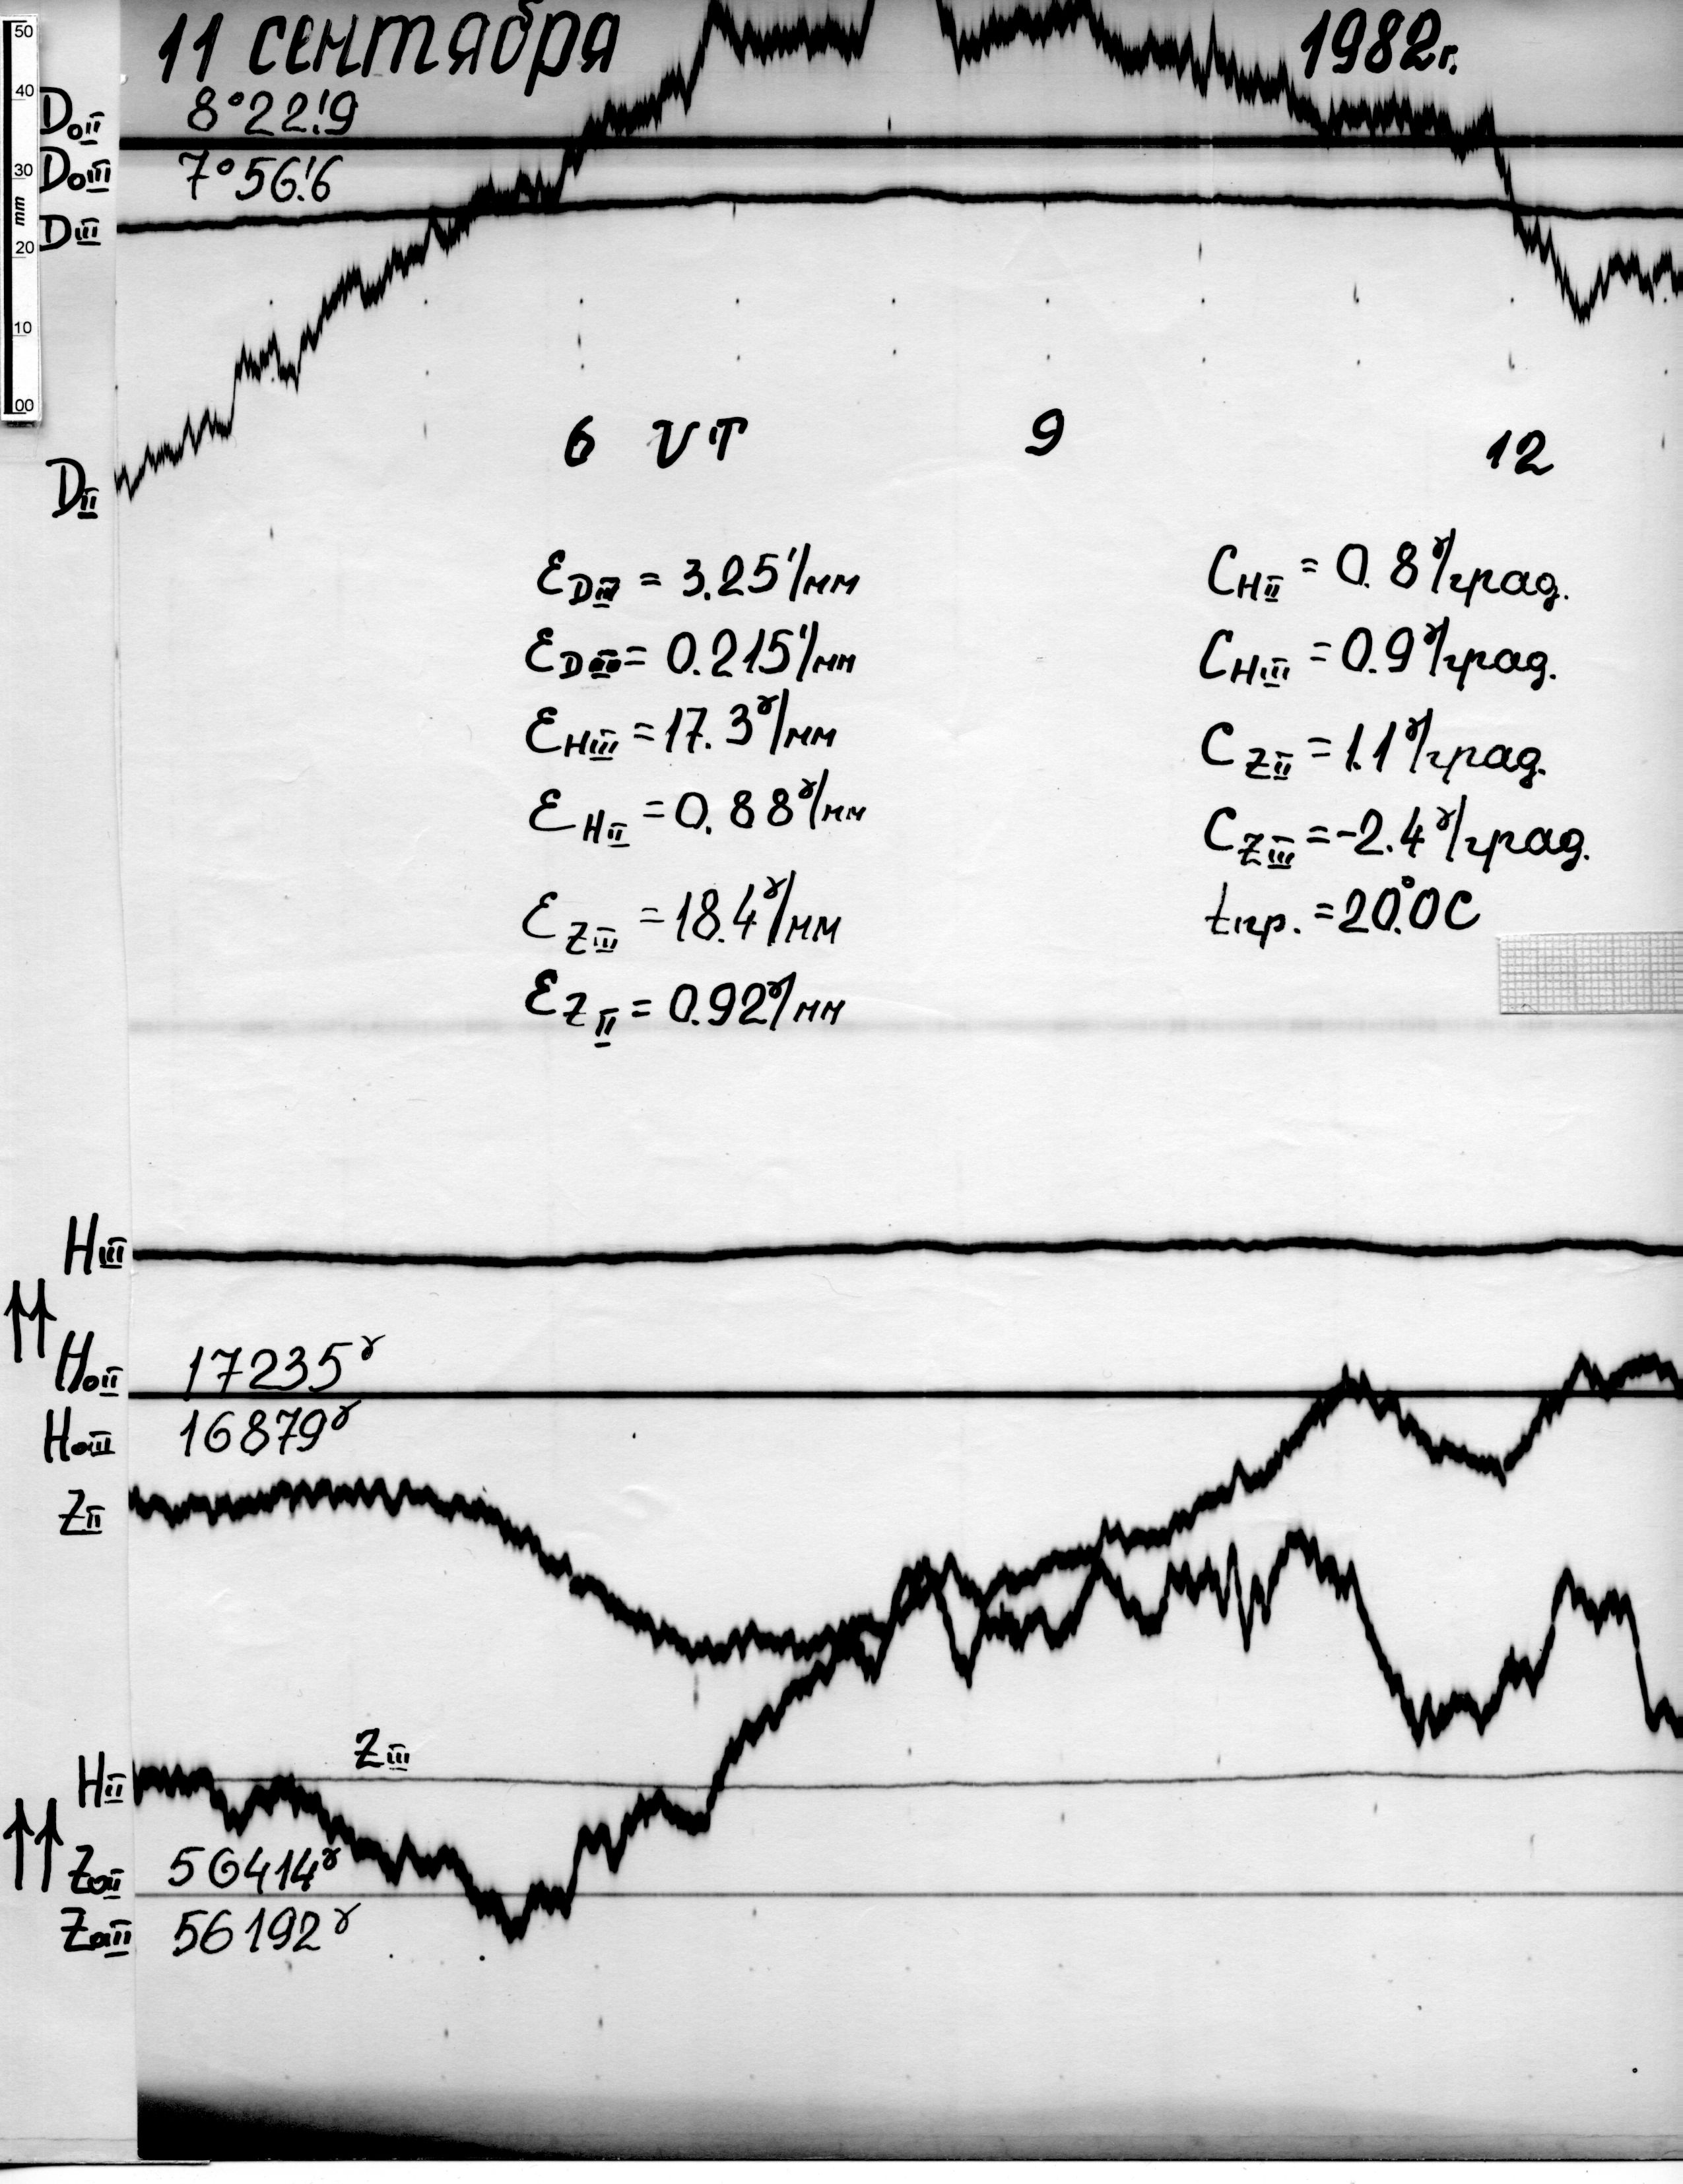 11 сентября 1982г.
50
40
30
mm
20
10
00
D₀II 8°22!9
D₀III 7°56!6
DIII
DII
6 UT 9 12
εDIII = 3.25'/мм
εDII = 0.215'/мм
εHIII = 17.3γ/мм
εHII = 0.88γ/мм
εZIII = 18.4γ/мм
εZII = 0.92γ/мм
CHII = 0.8γ/град.
CHIII = 0.9γ/град.
CZII = 1.1γ/град.
CZIII = -2.4γ/град.
tпр. = 20°.0C
HIII
H₀II 17235γ
H₀III 16879γ
ZII
ZIII
HII
Z₀II 56414γ
Z₀III 56192γ